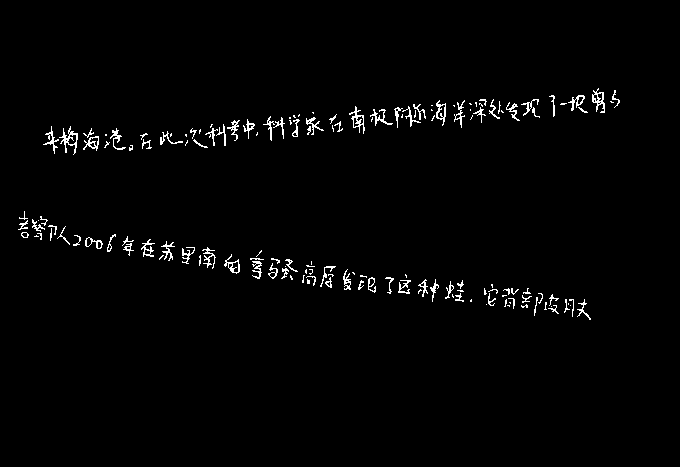 来梅海港。在此次科考中,科学家在南极附近海洋深处发现了一块曾
察队2006年在苏里南的拿骚高原发现了这种蛙,它背部皮肤